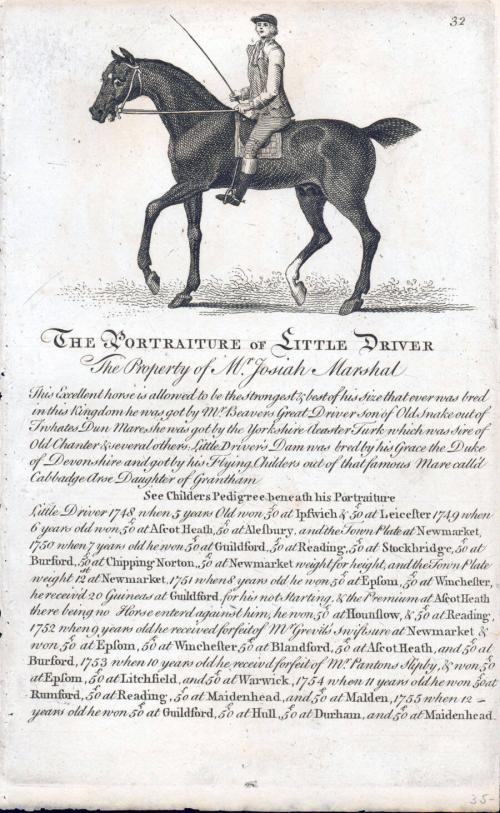 32
THE PORTRAITURE OF LITTLE DRIVER
The Property of Mr. Josiah Marshal
This Excellent horse is allowed to be the strongest & best of his size that ever was bred
in this Kingdom he was got by Mr. Beavers Great Driver Son of Old Snake out of
Tnhates Dun Mare, she was got by the Yorkshire Acaster Turk which was sire of
Old Chanter & several others, Little Driver's Dam was bred by his Grace the Duke
of Devonshire and got by his Flying Childers out of that famous Mare call'd
Cabbadge Arse Daughter of Grantham
See Childers Pedigree beneath his Portraiture
Little Driver 1748 when 5 Years Old won 50 at Ipswich & 50 at Leicester 1749 when
6 years old won 50 at Ascot Heath, 50 at Alesbury, and the Town Plate at Newmarket,
1750 when 7 years old he won 50 at Guildford, 50 at Reading, 50 at Stockbridge, 50 at
Burford, 50 at Chipping Norton, 50 at Newmarket weight for height, and the Town Plate
weight 12st at Newmarket, 1751 when 8 years old he won 50 at Epsom, 50 at Winchester,
he receivd 20 Guineas at Guildford, for his not Starting, & the Premium at Ascot Heath
there being no Horse enterd against him, he won 50 at Hounslow, & 50 at Reading,
1752 when 9 years old he received forfeit of Mr. Grevils Swiftsure at Newmarket &
won 50 at Epsom, 50 at Winchester 50 at Blandford, 50 at Ascot Heath, and 50 at
Burford, 1753 when 10 years old he receivd forfeit of Mr. Pantons Slipby, & won 50
at Epsom, 50 at Litchfield, and 50 at Warwick, 1754 when 11 years old he won 50 at
Rumford, 50 at Reading, 50 at Maidenhead, and 50 at Malden, 1755 when 12
years old he won 50 at Guildford, 50 at Hull, 50 at Durham, and 50 at Maidenhead.
35-